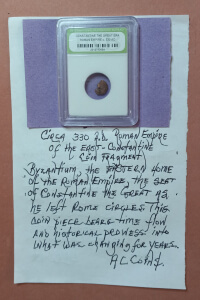 CONSTANTINE THE GREAT ERA
Circa 330 A.D. Roman Empire
of the East-Constantine
Coin Fragment)
Byzantium, the Eastern Home
of the Roman Empire, the seat
of Constantine the Great as
he left Rome circles. This
coin piece bears time
and historical prowess into
what was changing for years.